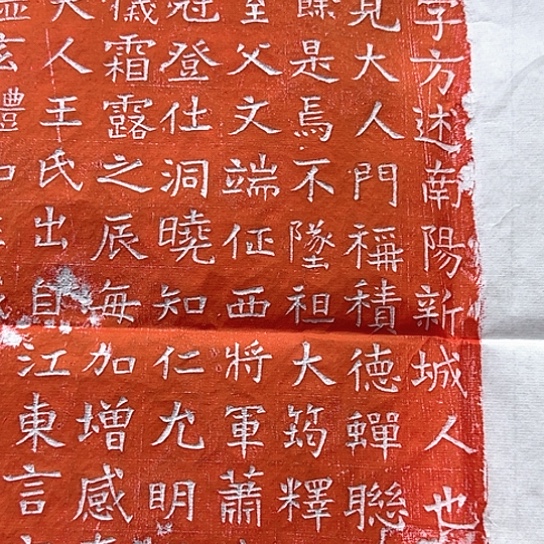 字方述南陽新城人也
見大人門稱積德蟬聯
餘是焉不墜祖大筠釋
至父文端征西將軍蕭
冠登仕洞曉知仁尤明
儀霜露之辰每加增感
人王氏出自江東言